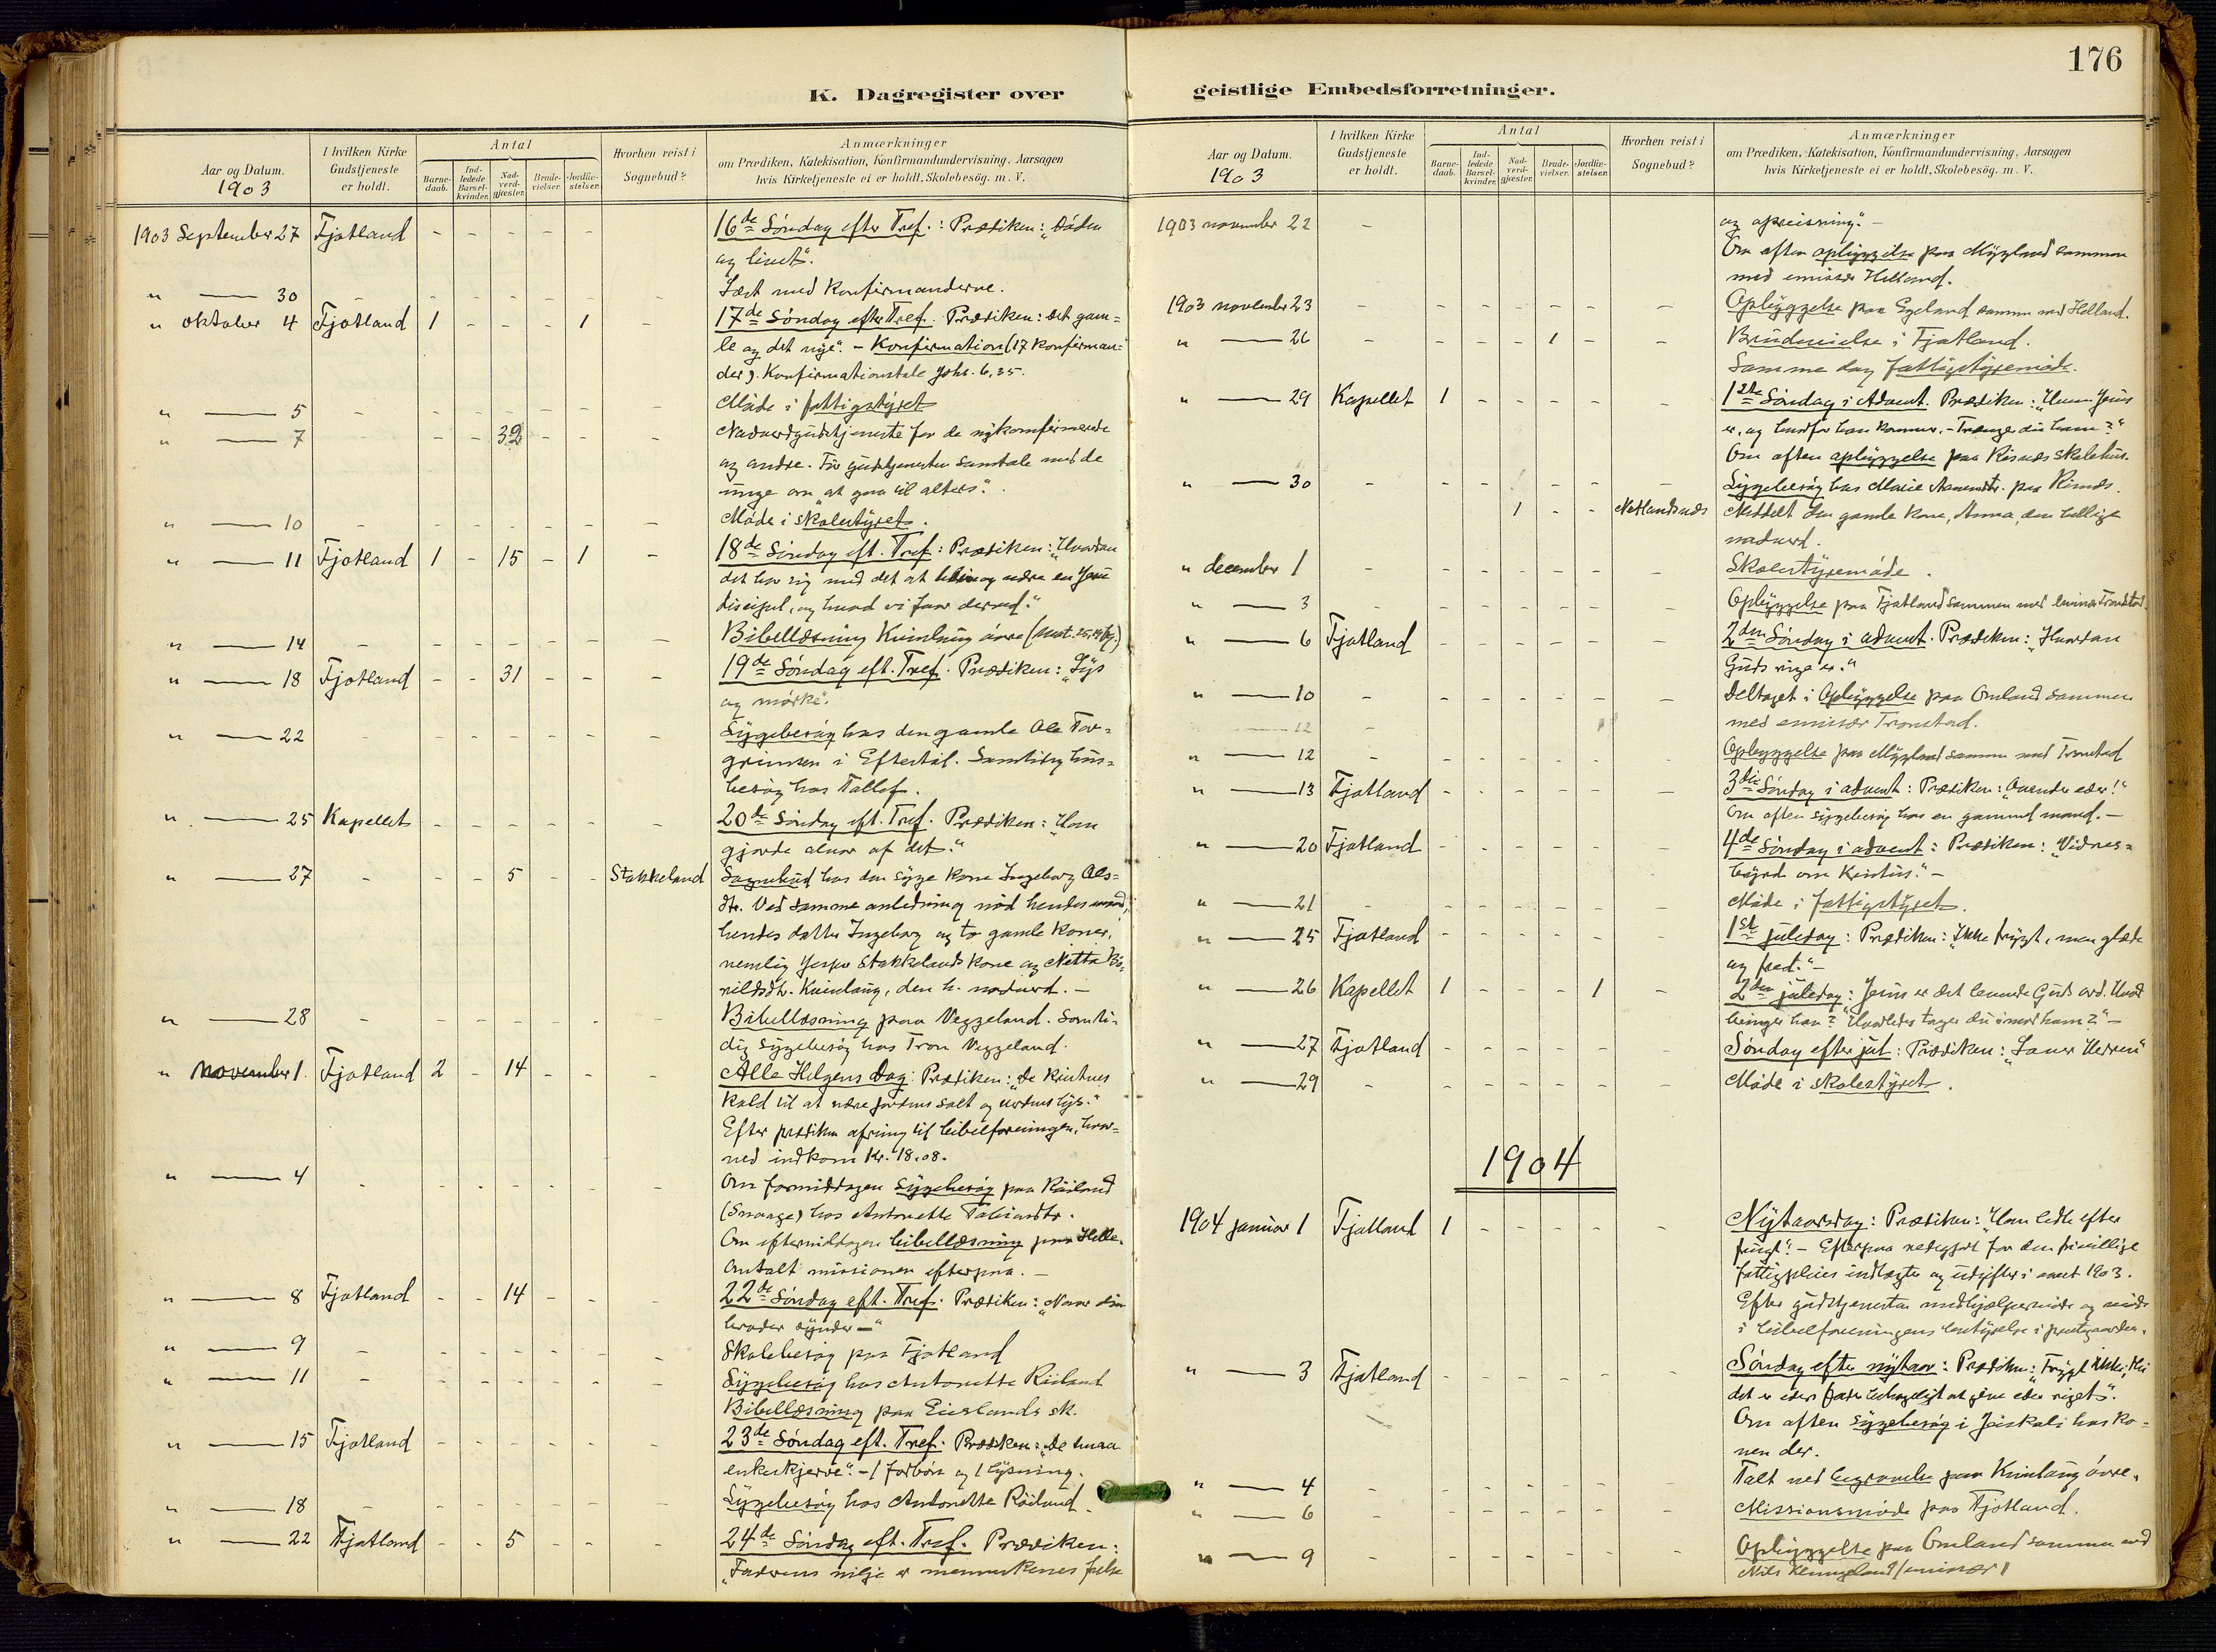 176
K. Dagregister over
geistlige Embedsforretninger.
Aar og Datum.
1903
I hvilken Kirke
Gudstjeneste
er holdt.
Antal
Barne-
daab.
Ind-
ledede
Barsel-
kvinder.
Nad-
verd-
gjæster.
Brude-
vielser.
Jordfæ-
stelser.
Hvorhen reist i
Sognebud?
Anmærkninger
om Prædiken, Katekisation, Konfirmandundervisning, Aarsagen
hvis Kirketjeneste ei er holdt, Skolebesög. m. V.
1903 September 27 Fjotland - - - - - 16de Søndag efter Tref.: Prædiken: „Døden
og livet".
" — 30 - - - - - - - Læst med Konfirmanderne.
" oktober 4 Fjotland 1 - - - 1 - 17de Søndag efter Tref. Prædiken: Det gam=
le og det nye". - Konfirmation (17 konfirman=
der). Konfirmationstale Johs. 6,35.
" — 5 - - - - - - Møde i fattigstyret
" — 7 - - - 32 - - - Nadverdgudstjeneste for de nykonfirmerede
og andre. Før gudstjenesten samtale med de
unge om „at gaa til alters".
" — 10 - - - - - - - Møde i skolestyret.
" — 11 Fjotland 1 - 15 - 1 - 18de Søndag eft. Tref: Prædiken: „Hvordan
det har sig med det at blive og være en Jesu
discipel, og hvad vi faar derved."
" — 14 - - - - - - - Bibellæsning Kvinlaug øvre
" — 18 Fjotland - - 31 - - - 19de Søndag eft. Tref. Prædiken: „Lys
og mørke".
" — 22 - - - - - - - Sygebesøg hos den gamle Ole Tor=
grimsen i Eftestøl. Samtidig hus=
besøg hos Tallef.
" — 25 Kapellet - - - - - - 20de Søndag eft. Tref. Prædiken: „Han
gjorde alvor af det."
" — 27 - - - 5 - - Stakkeland Sognebud hos den syge kone Ingeborg Ols=
dtr. Ved samme anledning nød hendes mand,
hendes datter Ingeborg og to gamle koner,
nemlig Jesper Stakkelands kone og
Kvinlaug, den h. nadverd. -
" — 28 - - - - - - - Bibellæsning paa Veggeland. Samti=
dig sygebesøg hos Tron Veggeland.
" November 1. Fjotland 2 - 14 - - - Alle Helgens Dag: Prædiken: „De kristnes
kald til at være jordens salt og verdens lys."
Efter prædiken ofring til bibelforeningen, hvor=
ved indkom Kr. 18.08.
" — 4 - - - - - - - Om formiddagen sygebesøg paa Røiland
hos Antonette
Om eftermiddagen bibellæsning paa Helle.
Omtalt missionen efterpaa. -
" — 8 Fjotland - - 14 - - - 22de Søndag eft. Tref. Prædiken: „Naar din
broder synder -"
" — 9 - - - - - - - Skolebesøg paa Fjotland
" — 11 - - - - - - - Sygebesøg hos Antonette Röiland
Bibellæsning paa Eieslands sk.
" — 15 Fjotland - - - - - - 23de Søndag eft. Tref. Prædiken: „De smaa
enkeskjerve". - 1 forbön og 1 lysning.
" — 18 - - - - - - - Sygebesøg hos Antonette Röiland.
" — 22 Fjotland - - 5 - - - 24de Søndag eft. Tref. Prædiken:
„Faderens vilje er menneskenes frelse
Aar og Datum.
1903
I hvilken Kirke
Gudstjeneste
er holdt.
Antal
Barne-
daab.
Ind-
ledede
Barsel-
kvinder.
Nad-
verd-
gjæster.
Brude-
vielser.
Jordfæ-
stelser.
Hvorhen reist i
Sognebud?
Anmærkninger
om Prædiken, Katekisation, Konfirmandundervisning, Aarsagen
hvis Kirketjeneste ei er holdt, Skolebesög. m. V.
1903 november 22 - og opreisning". -
Om aften opbyggelse paa Mygland sammen
med emissær Helland.
1903 november 23 - - - - - - - Opbyggelse paa Egeland samm. med Helland.
" — 26 - - - - 1 - - Brudevielse i Fjotland.
Samme dag fattigstyremøde.
" — 29 Kapellet 1 - - - - - 1ste Søndag i Advent. Prædiken: „Hvem Jesus
er, og hvorfor han kommer. - Trænger du ham?"
Om aften opbyggelse paa Risnes skolehus.
" — 30 - - - - - - Sygebesøg hos Marie paa Risnes.
1 - - Netlandsnes Meddelt den gamle kone, Anna, den hellige
nadverd.
" december 1 - - - - - - - Skolestyremøde.
" — 3 - - - - - - - Opbyggelse paa Fjotland sammen med emissær Tronstad.
" — 6 Fjotland - - - - - - 2den Søndag i advent. Prædiken: „Hvordan
Guds rige er."
" — 10 - - - - - - - Deltaget i Opbyggelse paa Omland sammen
med emissær Tronstad.
— 12 -
" — 12 - - - - - - - Opbyggelse paa Mygland samm. med Tronstad
" — 13 Fjotland - - - - - - 3die Søndag i advent: Prædiken: „Omvender eder!"
Om aften sygebesøg hos en gammel mand. -
" — 20 Fjotland - - - - - - 4de Søndag i advent: Prædiken: „Vidnes=
byrd om Kristus." -
" — 21 - - - - - - - Møde i fattigstyret.
" — 25 Fjotland - - - - - - 1ste juledag: Prædiken: „Ikke frygt, men glæde
og fred." -
" — 26 Kapellet 1 - - - 1 - 2den juledag: Jesus er det levende Guds ord. Hvad
bringer han? Hvorledes tager du imod ham?" -
" — 27 Fjotland - - - - - - Søndag efter jul: Prædiken: „Lover Herren"
" — 29 - - - - - - - Møde i skolestyret.
1904
1904 januar 1 Fjotland 1 - - - - - Nytaarsdag: Prædiken: „Han ledte efter
frugt". - Efterpaa redegjort for den frivillige
fattigpleies indtægter og udgifter i aaret 1903.
Efter gudstjenesten medhjælpermøde og møde
i bibelforeningens bestyrelse i prestgaarden.
" — 3 Fjotland - - - - - - Søndag efter nytaar: Prædiken: „Frygt ikke, thi
det er eders fader behageligt at give eder riget".
Om aften sygebesøg i hos ko=
nen der.
" — 4 - - - - - - - Talt ved begravelse paa Kvinlaug øvre.
" — 6 - - - - - - - Missionsmøde paa Fjotland.
" — 9 - - - - - - - Opbyggelse paa Omland sammen med
Nils (emissær)